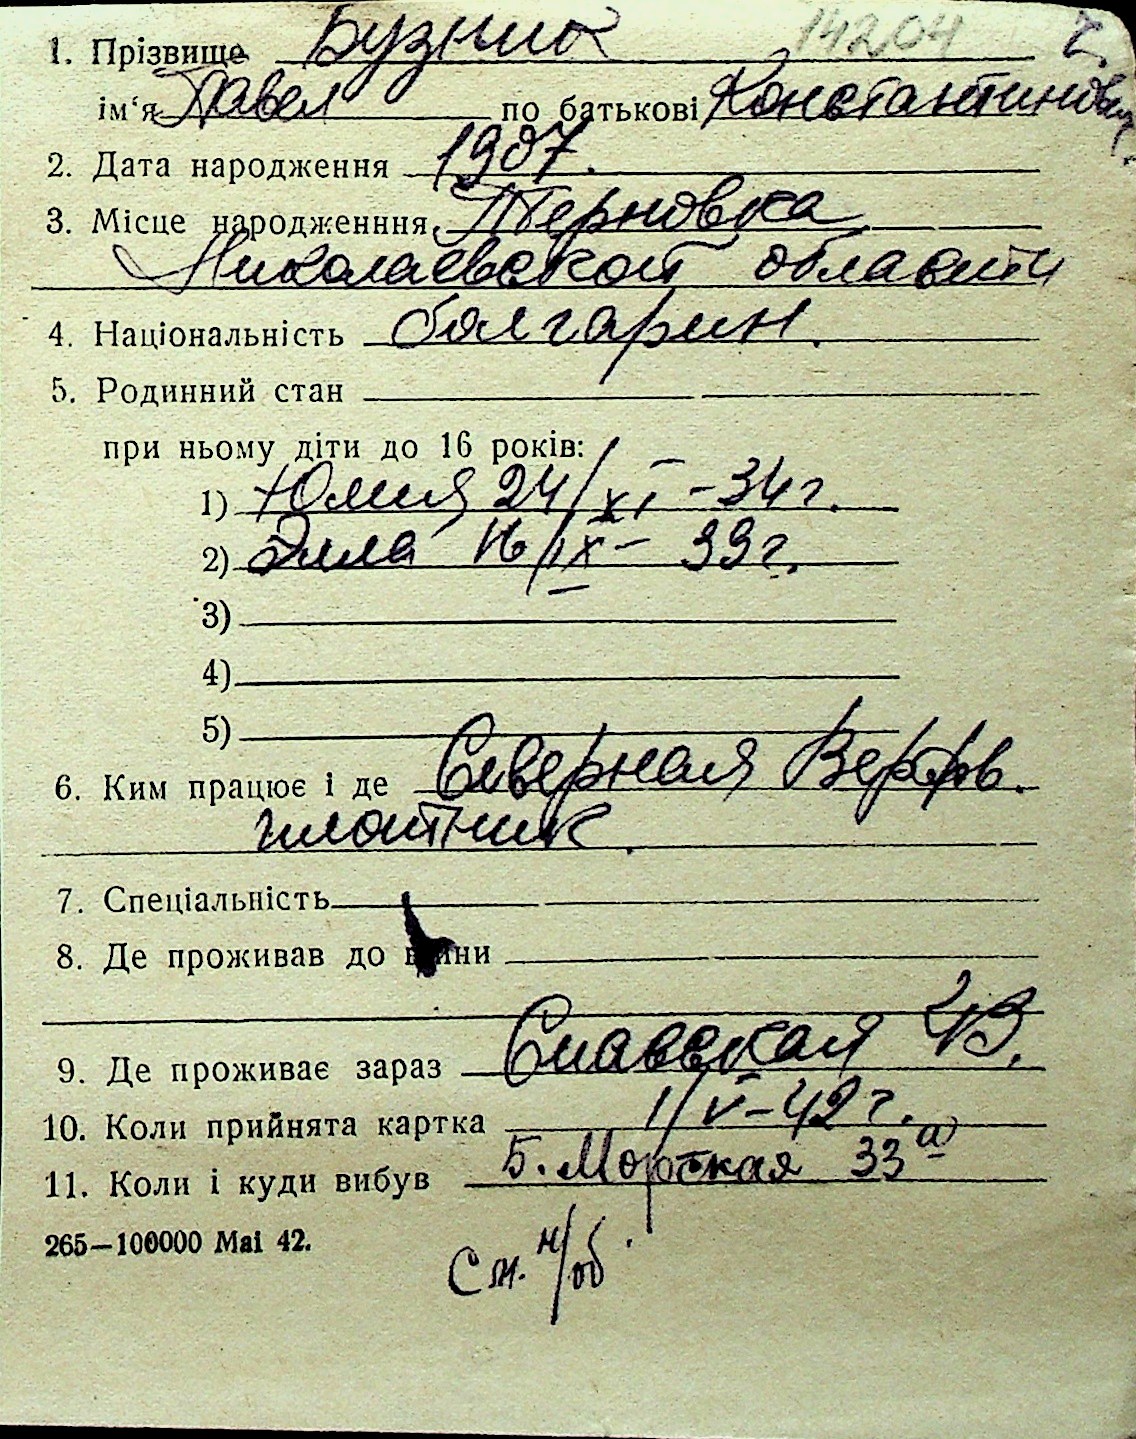 14204 г.
1. Прізвище Бузник
ім‘я Павел по батькові Константинович
2. Дата народження 1907.
3. Місце народженння Терновка
Николаевской области
4. Національність болгарин.
5. Родинний стан
при ньому діти до 16 років:
1) Юлия 24/XI-34г.
2) Элла 16/IX-39г.
3)
4)
5)
6. Ким працює і де Северная Верфь.
плотник.
7. Спеціальність
8. Де проживав до війни
9. Де проживає зараз Спасская 43.
10. Коли прийнята картка 1/V-42г.
11. Коли і куди вибув Б. Морская 33а)
265—100000 Mai 42.
См. н/об.